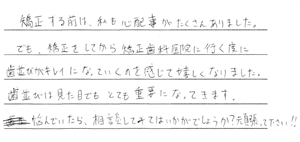 矯正する前は、私も心配事がたくさんありました。
でも、矯正をしてから矯正歯科医院に行く度に
歯並びがキレイになっていくのを感じて嬉しくなりました。
歯並びは見た目でもとても重要になってきます。
悩んでいたら、相談をしてみてはいかがでしょうか?頑張って下さい!!